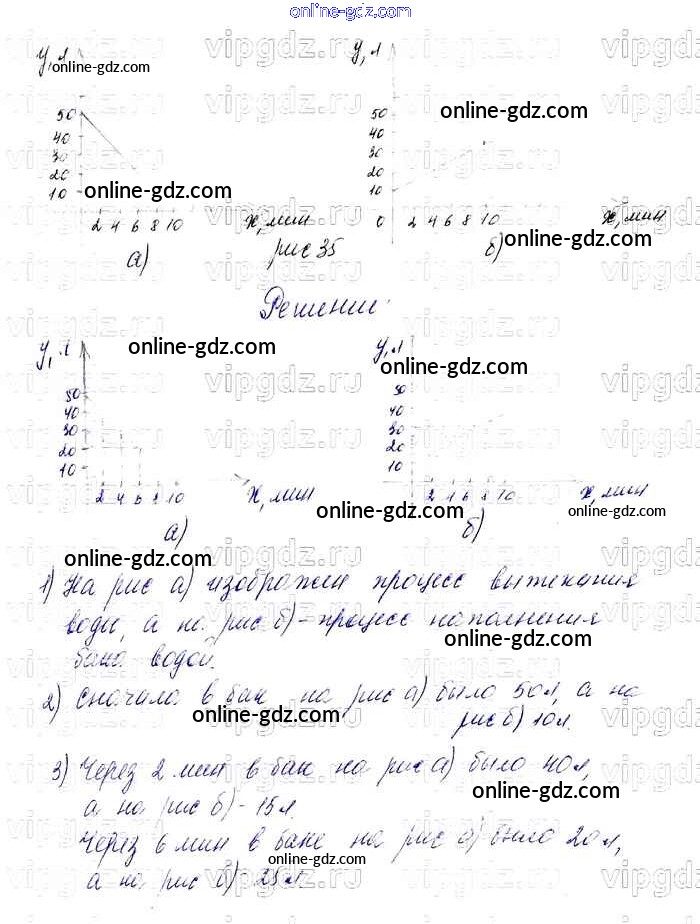 online-gdz.com
у, л у, л
online-gdz.com
online-gdz.com
50 50
40 40
30 30
20 20
10 10
online-gdz.com
0
2 4 6 8 10 х, мин 2 4 6 8 10 х, мин
а) рис 35 б)
online-gdz.com
Решение:
у, л у, л
online-gdz.com
online-gdz.com
50 50
40 40
30 30
20 20
10 10
2 4 6 8 10 х, мин 2 4 6 8 10 х, мин
online-gdz.com
online-gdz.com
а) б)
online-gdz.com
1) На рис а) изображен процесс вытекания
воды, а на рис. б) - процесс наполнения
online-gdz.com
бака водой.
2) Сначала в бак на рис а) было 50 л, а на
рис б) 10 л.
online-gdz.com
3) Через 2 мин в бак на рис а) было 40 л,
online-gdz.com
а на рис б) - 15 л.
Через 6 мин в баке на рис а) было 20 л,
online-gdz.com
а на рис б) - 25 л.
online-gdz.com
vipgdz.ru